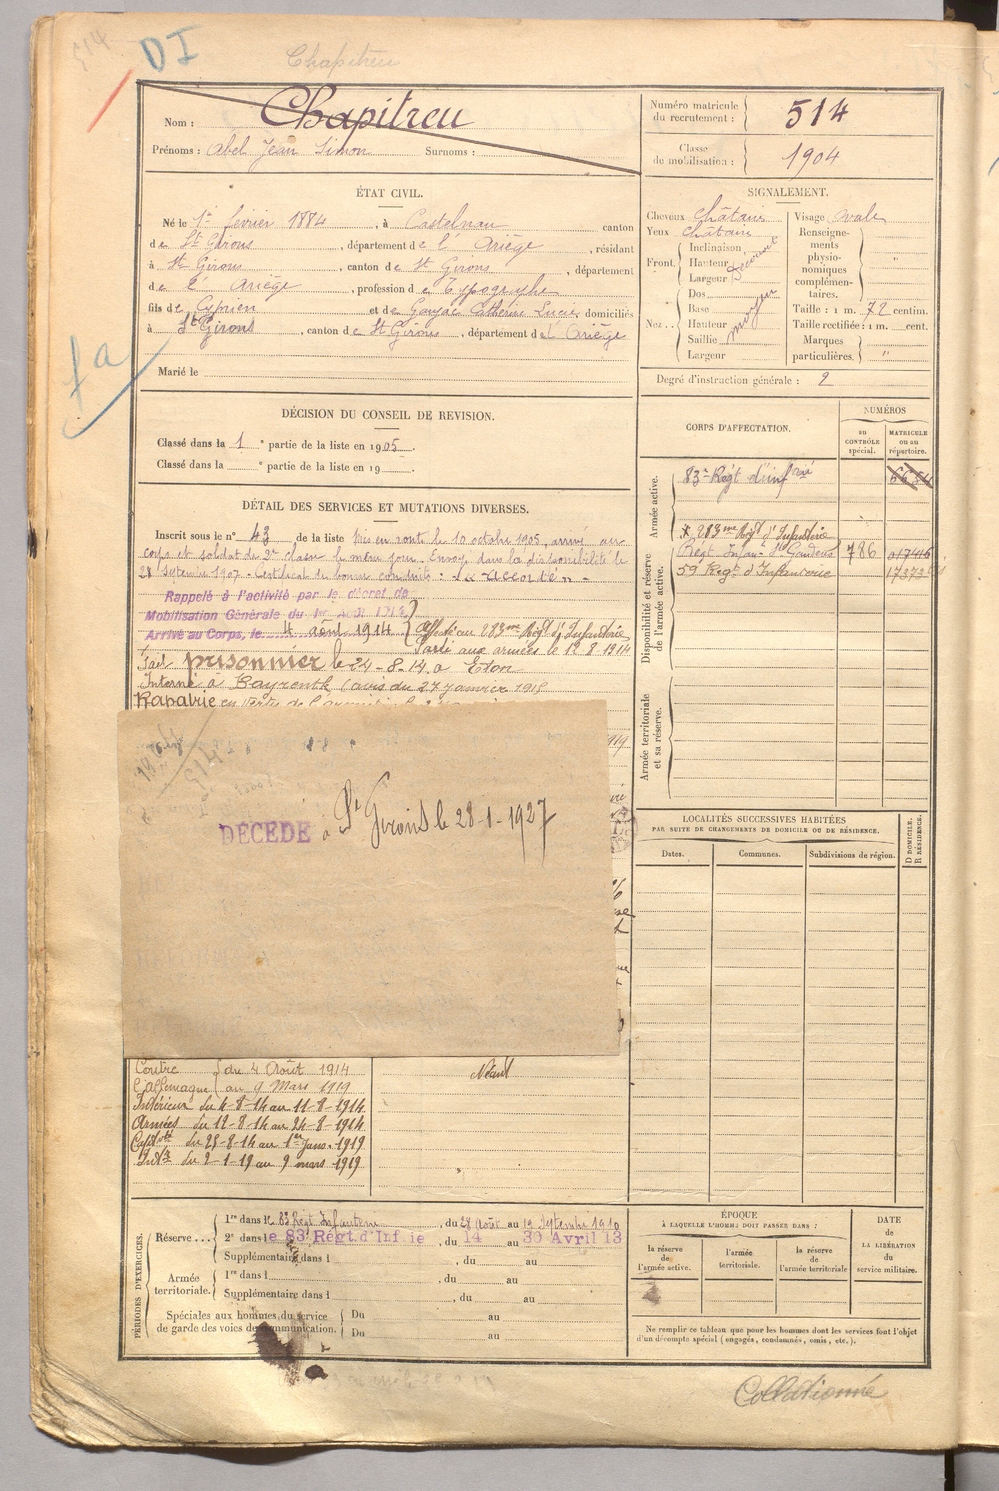 514
DI
Chapitreu
Nom : Chapitreu
Prénoms : Abel Jean Simon Surnoms :
Numéro matricule du recrutement : 514
Classe de mobilisation : 1904
ÉTAT CIVIL.
Né le 1er février 1884, à Castelnau canton
de St Girons, département de l'Ariège, résidant
à St Girons, canton de St Girons, département
de l'Ariège, profession de Typographe
fils de Cyprien et de Catherine Lucie domiciliés
à St Girons, canton de St Girons, département de l'Ariège
Marié le
fa
SIGNALEMENT.
Cheveux châtain
Yeux châtain
Front. Inclinaison
Hauteur
Largeur découvert
Nez... Dos
Base
Hauteur moyen
Saillie
Largeur
Visage ovale
Renseignements physionomiques complémentaires. "
Taille : 1 m. 72 centim.
Taille rectifiée : 1 m. cent.
Marques particulières. "
Degré d'instruction générale : 2
DÉCISION DU CONSEIL DE REVISION.
Classé dans la 1 e partie de la liste en 1905.
Classé dans la e partie de la liste en 19
CORPS D'AFFECTATION.
NUMÉROS
au CONTRÔLE spécial.
MATRICULE ou au répertoire.
Armée active.
83e Régt d'infrie 6684
Disponibilité et réserve de l'armée active.
283me Régt d'Infanterie
Régt Infan. St Gaudens 786 01746
59 Régt d'Infanterie 17373
Armée territoriale et sa réserve.
DÉTAIL DES SERVICES ET MUTATIONS DIVERSES.
Inscrit sous le no 43 de la liste Mis en route le 10 octobre 1905, arrivé au
corps et soldat de 2e classe le même jour. Envoyé dans la disponibilité le
28 septembre 1907. Certificat de bonne conduite : "Accordé"
Rappelé à l'activité par le décret de
Mobilisation Générale du 1er août 1914
Arrivé au Corps, le 4 août 1914 Affecté au 283me Régt d'Infanterie
Parti aux armées le 12 8 1914
Fait prisonnier le 24-8-14 à Eton
Interné à Bayreuth (avis du 27 janvier 1915
Rapatrié en vertu de
DÉCÉDÉ à St Girons le 28-1-1927
LOCALITÉS SUCCESSIVES HABITÉES
PAR SUITE DE CHANGEMENTS DE DOMICILE OU DE RÉSIDENCE.
Dates. Communes. Subdivisions de région.
D DOMICILE. R RÉSIDENCE.
Contre du 4 Août 1914 Néant
l'Allemagne au 9 Mars 1919
Intérieur du 4-8-14 au 11-8-1914
Armées du 12-8-14 au 24-8-1914
Captté du 25-8-14 au 1er Janv. 1919
Int. du 2-1-19 au 9 mars 1919
PÉRIODES D'EXERCICES.
Réserve... 1re dans le 83 Régt Infanterie, du 28 Août au 19 Septembre 1910
2e dans le 83 Régt. d'Inf ie, du 14 au 30 Avril 13
Supplémentaire dans l, du au
Armée territoriale. 1re dans l, du au
Supplémentaire dans l, du au
Spéciales aux hommes du service de garde des voies de communication. Du au
Du au
ÉPOQUE
À LAQUELLE L'HOMME DOIT PASSER DANS :
la réserve de l'armée active.
l'armée territoriale.
la réserve de l'armée territoriale
DATE de LA LIBÉRATION du service militaire.
Ne remplir ce tableau que pour les hommes dont les services font l'objet
d'un décompte spécial (engagés, condamnés, omis, etc.).
Collationné